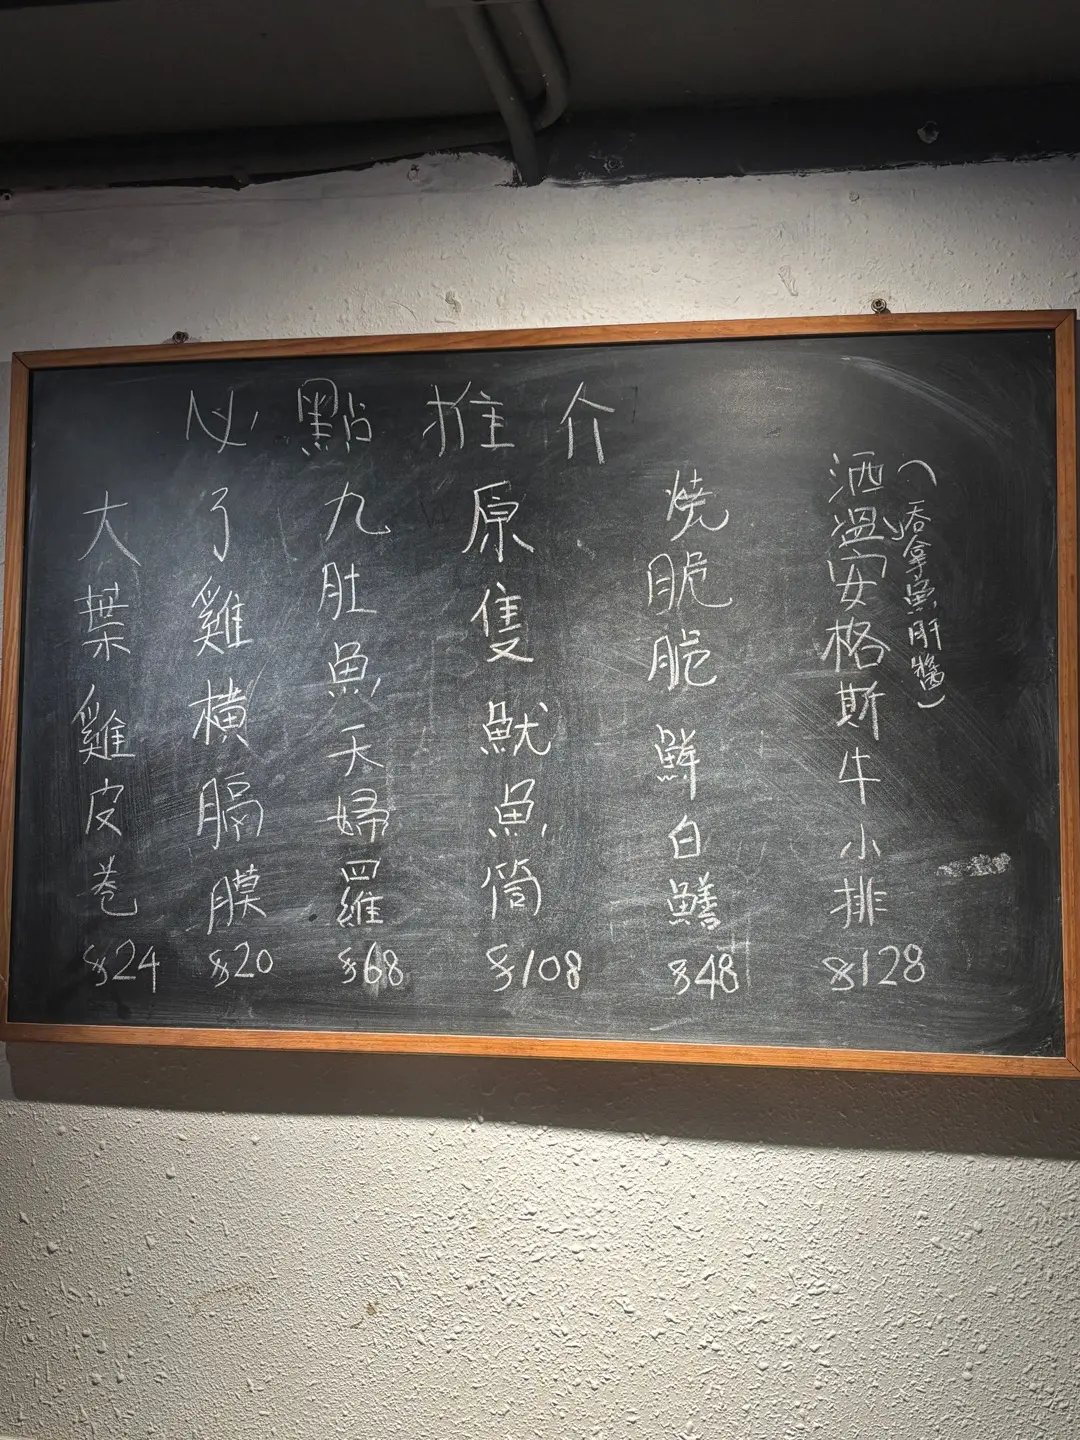 必點推介
大葉雞皮卷 $24
了雞橫膈膜 $20
九肚魚天婦羅 $68
原隻魷魚筒 $108
燒脆脆鮮白鱔 $48
洒溫安格斯牛小排 $128
(吞拿魚肝醬)